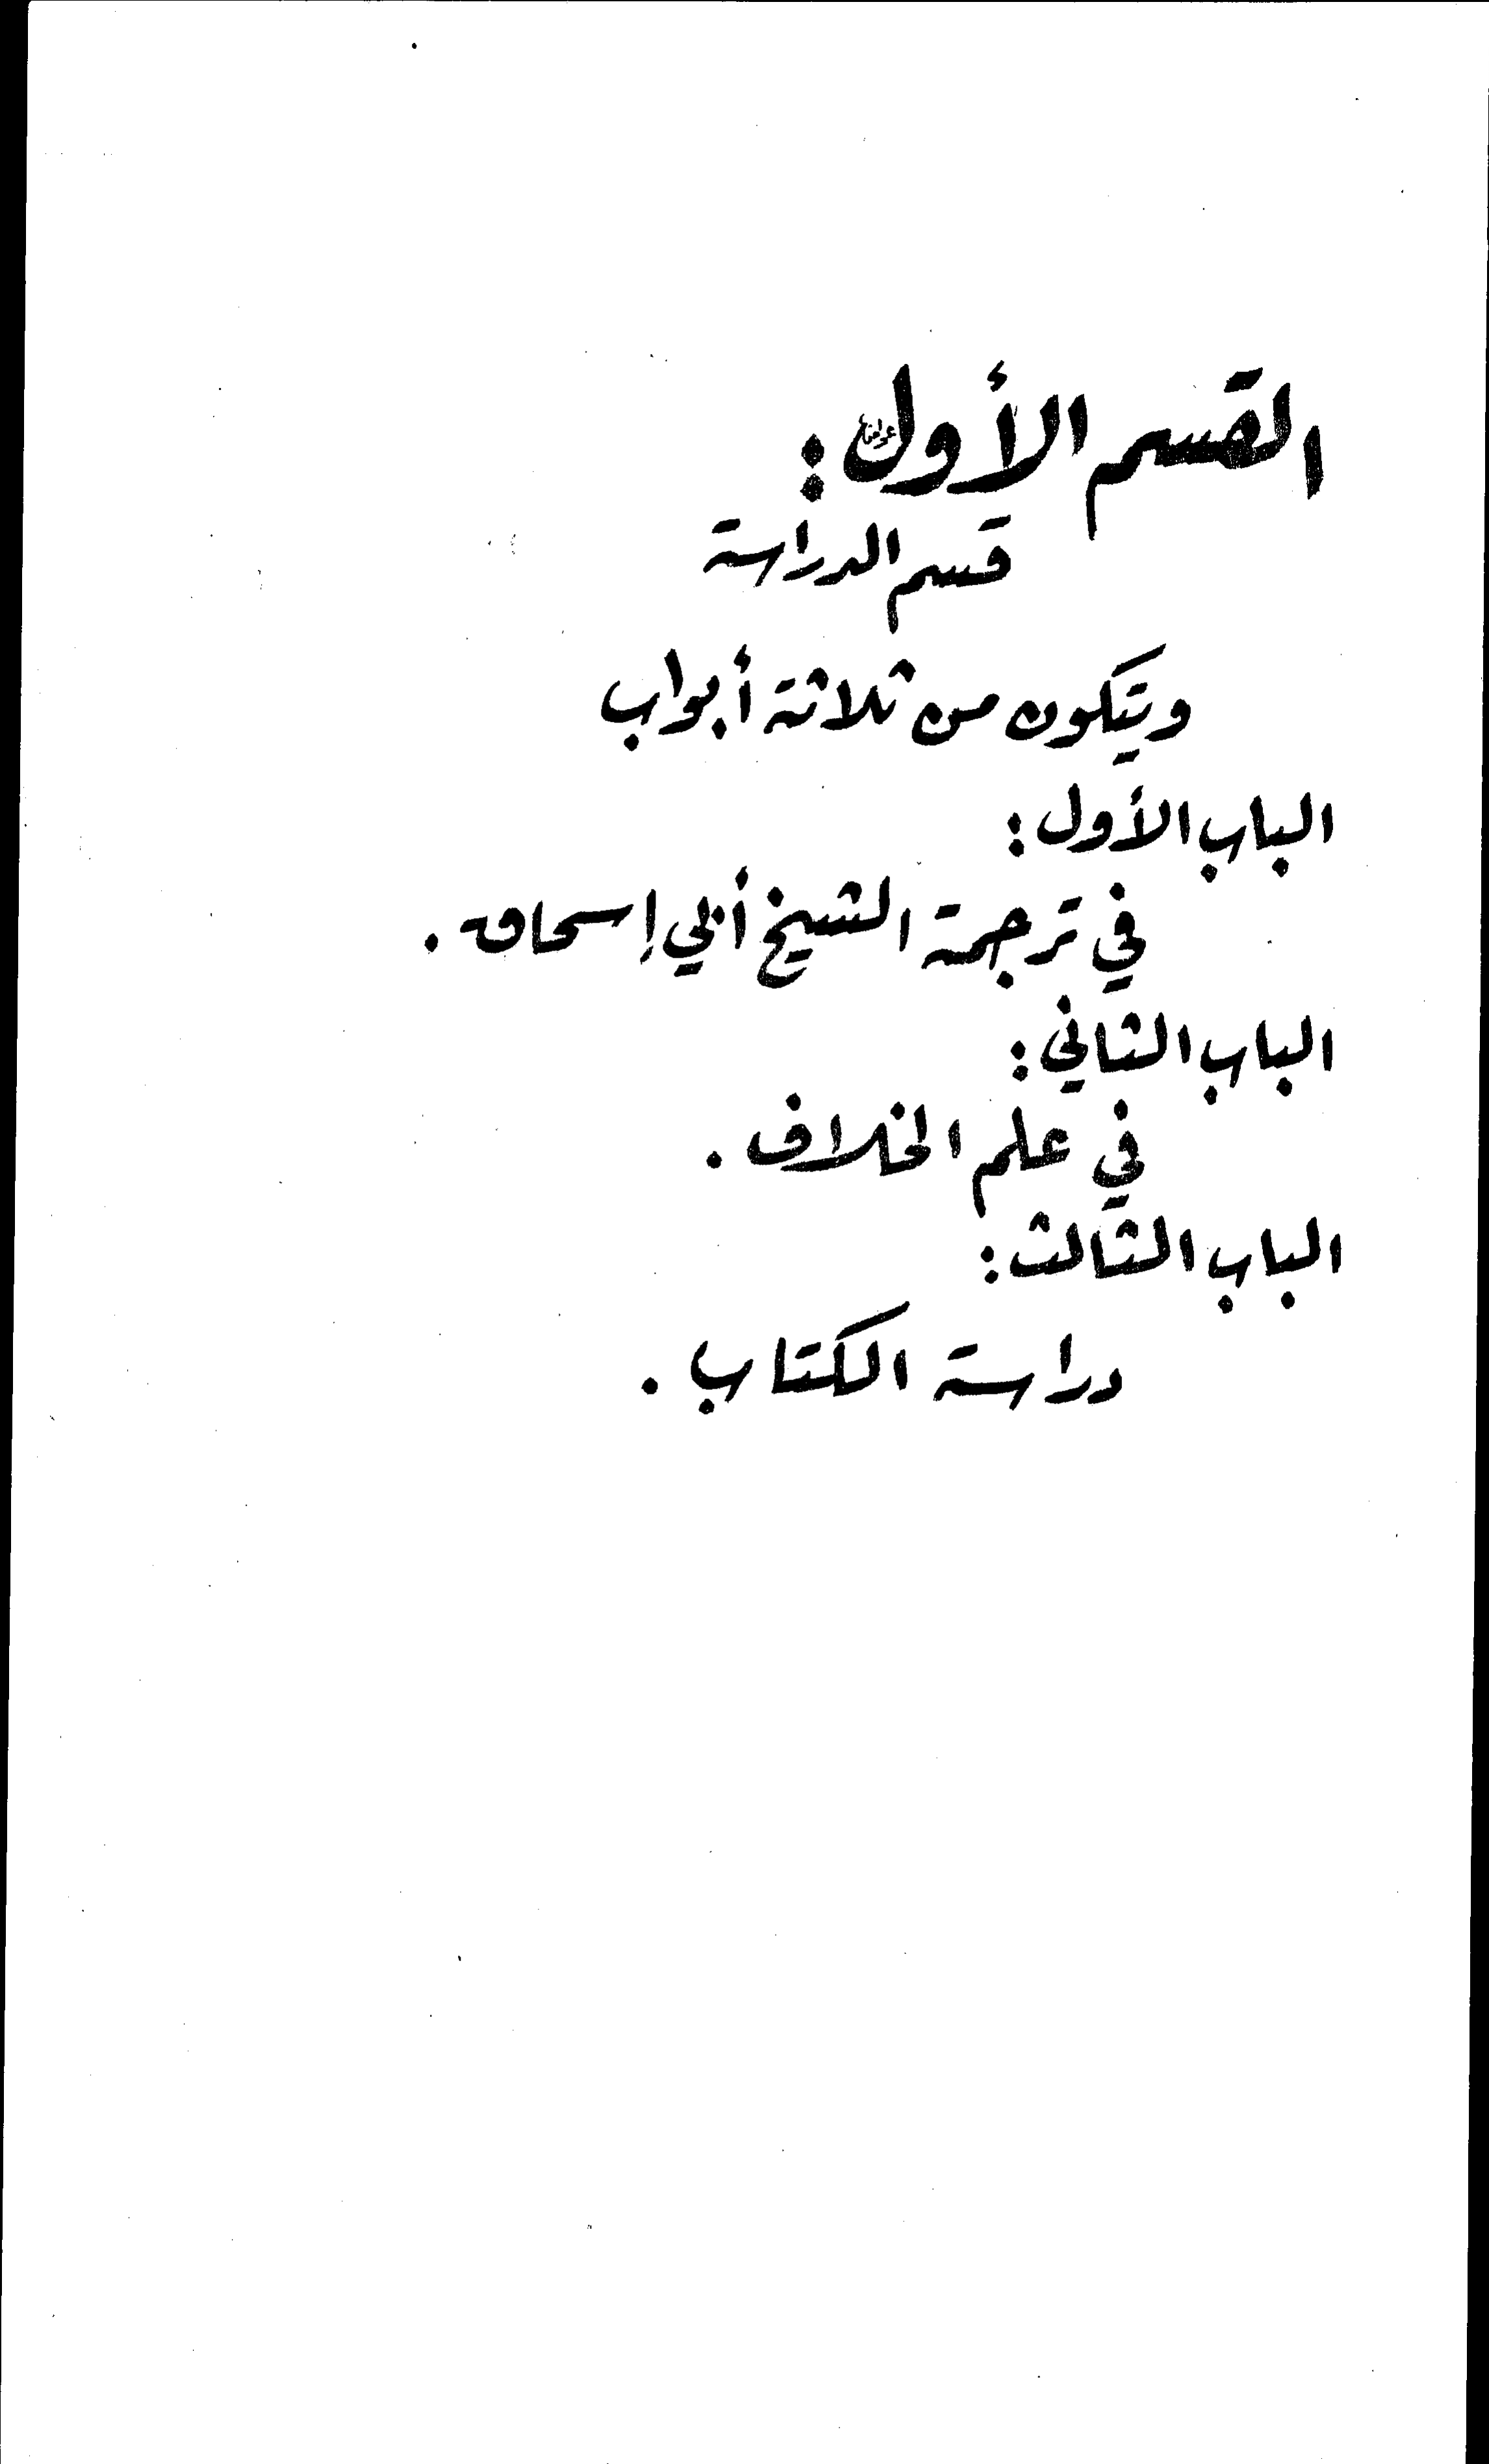 القسم الأول :
قسم الدراسة
ويتكون من ثلاثة أبواب
الباب الأول :
في ترجمة الشيخ أبي إسحاق .
الباب الثاني :
في علم الخلاف .
الباب الثالث :
دراسة الكتاب .